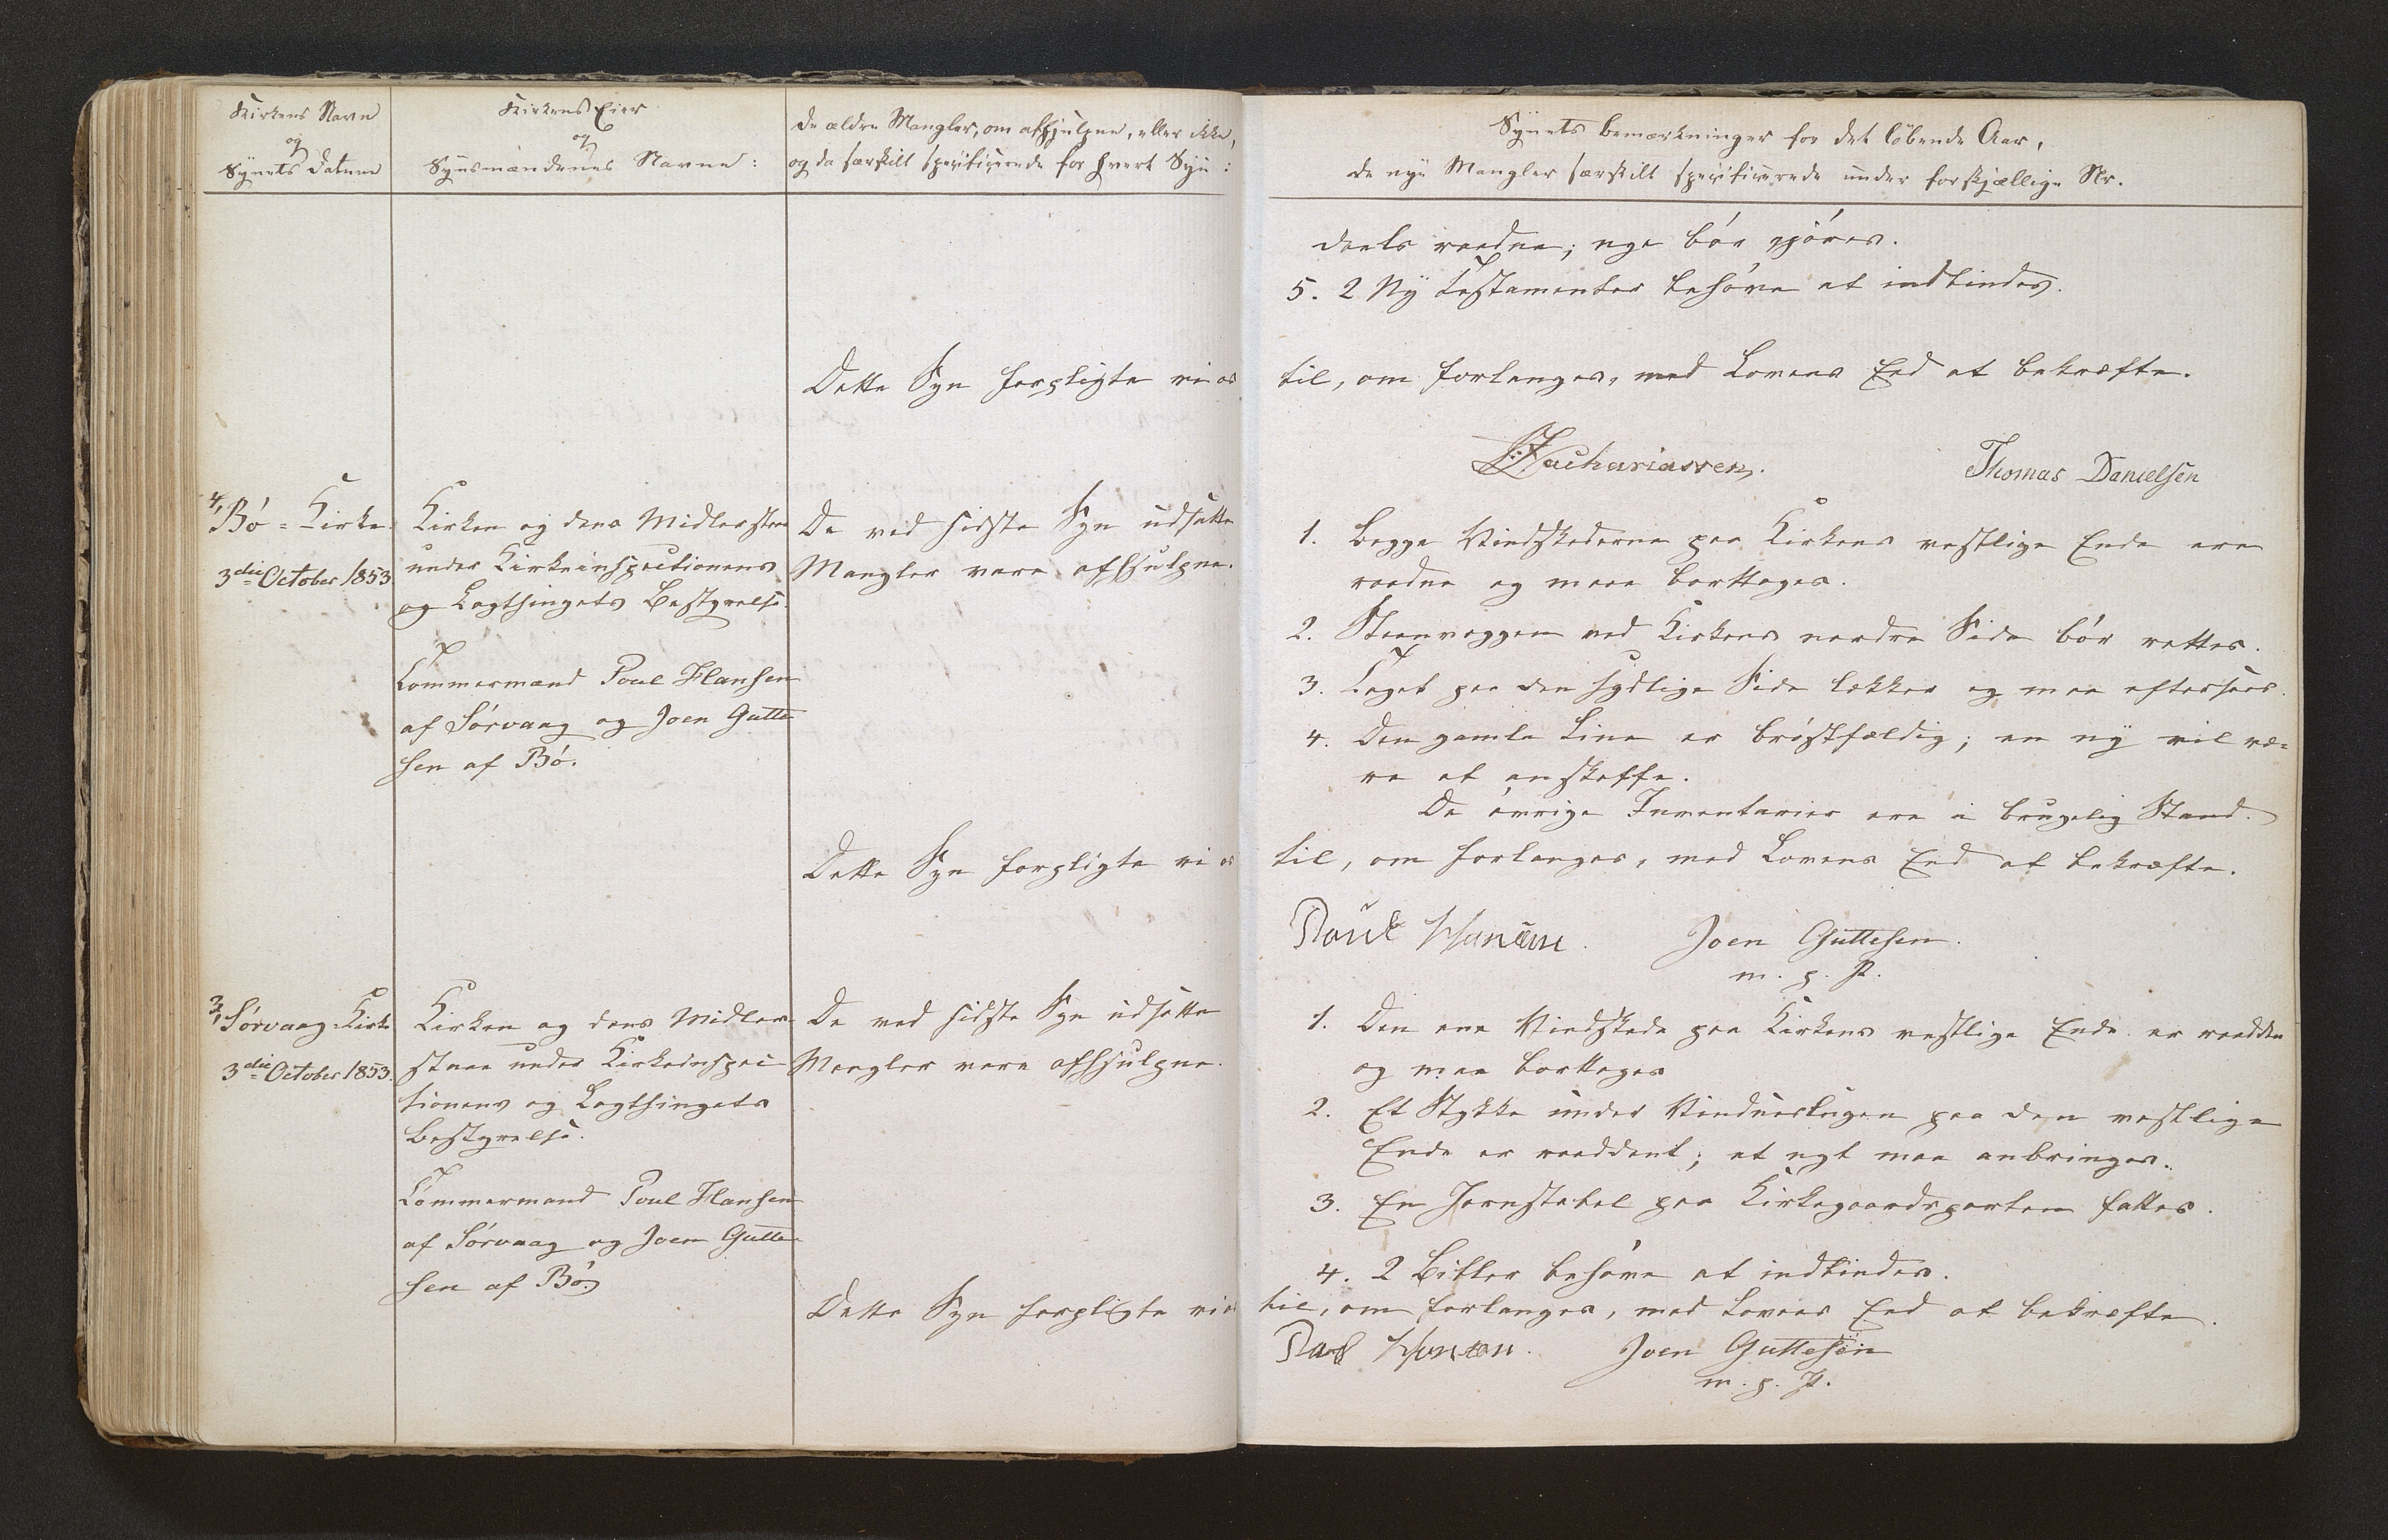 Kirkens Navn
og
Synets Datum
Kirkens Eier
og
Synsmændenes Navne:
De ældre Mangler, om afhjulpne, eller ikke,
og da særskilt specificerede for hvert Syn:
Synets bemærkninger for det löbende Aar,
de nye Mangler særskilt specificerede under forskjællige Nr.
deels raadne; nye bör gjöres.
5. 2 Ny Testamenter behöve at indbindes.
Dette Syn forpligte vi os
til, om forlanges, med Lovens Eed at bekræfte.
Zachariassen.
Thomas Danielsen
4, Bö-Kirke
3die October 1853
Kirken og dens Midler staae
under Kirkeinspectionens
og Lagthingets Bestyrelse.
Tömmermænd Poul Hansen
af Sörvaag og Joen Gutte
sen af Bö.
De ved sidste Syn udsatte
Mangler vare afhjulpne.
1. Begge Vindskederne paa Kirkens vestlige Ende ere
raadne og maae borttages.
2. Steenvæggen ved Kirkens nordre Side bör rettes.
3. Taget paa den sydlige Side lækker og maa eftersees.
4. Den gamle Line er bröstfældig; en ny vil væ-
re at anskaffe.
De övrige Inventarier ere i brugelig Stand.
Dette Syn forpligte vi os
til, om forlanges, med Lovens Eed at bekræfte.
Poul Hansen. Joen Guttesen.
m. p. P.
3, Sörvaag-Kirke
3die October 1853.
Kirken og dens Midler
staae under Kirkeinspec-
tionens og Lagthingets
Bestyrelse.
Tömmermænd Poul Hansen
af Sörvaag og Joen Gutte-
sen af Bö.
De ved sidste Syn udsatte
Mangler vare afhjulpne.
1. Den ene Vindskede paa Kirkens vestlige Ende er raadden
og maa borttages
2. Et Stykke under Vindueslugen paa den vestlige
Ende er raaddent; et nyt maa anbringes.
3. En Jernstabel paa Kirkegaardsporten fattes.
4. 2 Bibler behöve at indbindes.
Dette Syn forpligte vi os
til, om forlanges, med Lovens Eed at bekræfte.
Poul Hansen. Joen Guttesen
m. p. P.